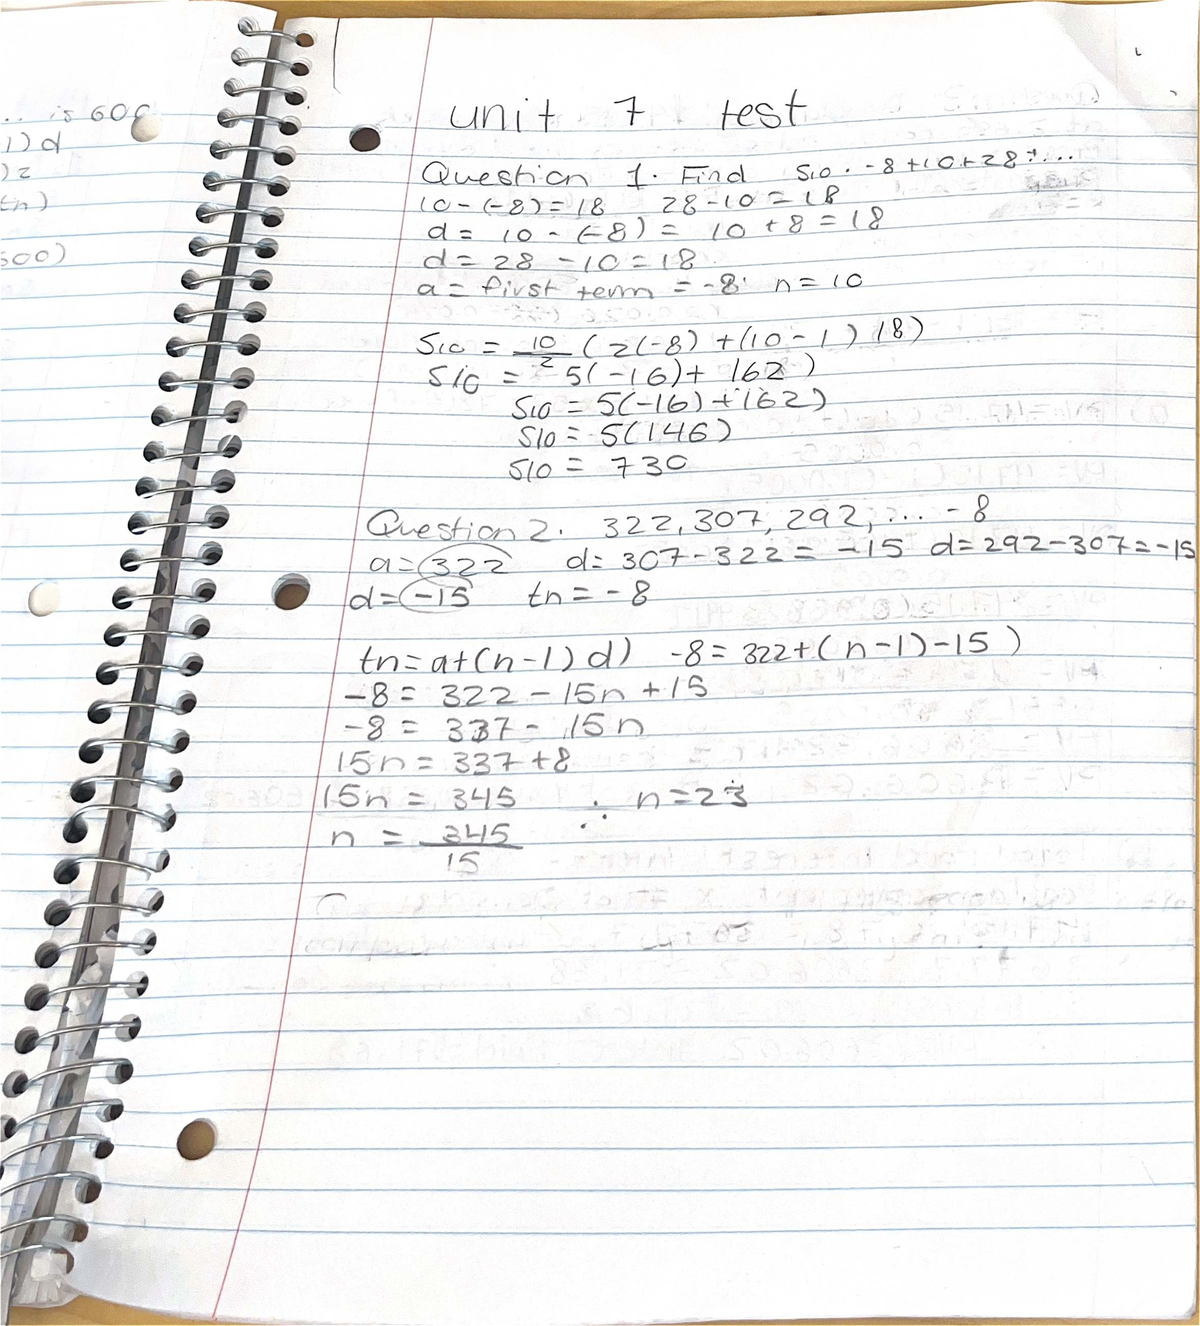 .. is 600
1) d
)2
tn)
500)
unit 7 test
Question 1. Find S10. -8+10+28+...
10-(-8)=18 28-10=18
d= 10-(-8)= 10+8=18
d= 28-10=18
a= first term = -8. n=10
S10 = 10/2 (2(-8)+(10-1)18)
S10 = 5(-16)+162)
S10 = 5(-16)+162)
S10 = 5(146)
S10 = 730
Question 2. 322,307,292,...-8
a=322 d=307-322=-15 d=292-307=-15
d=-15 tn=-8
tn=a+(n-1)d) -8=322+(n-1)-15)
-8= 322-15n+15
-8= 337-15n
15n=337+8
15n=345 ∴ n=23
n = 345/15